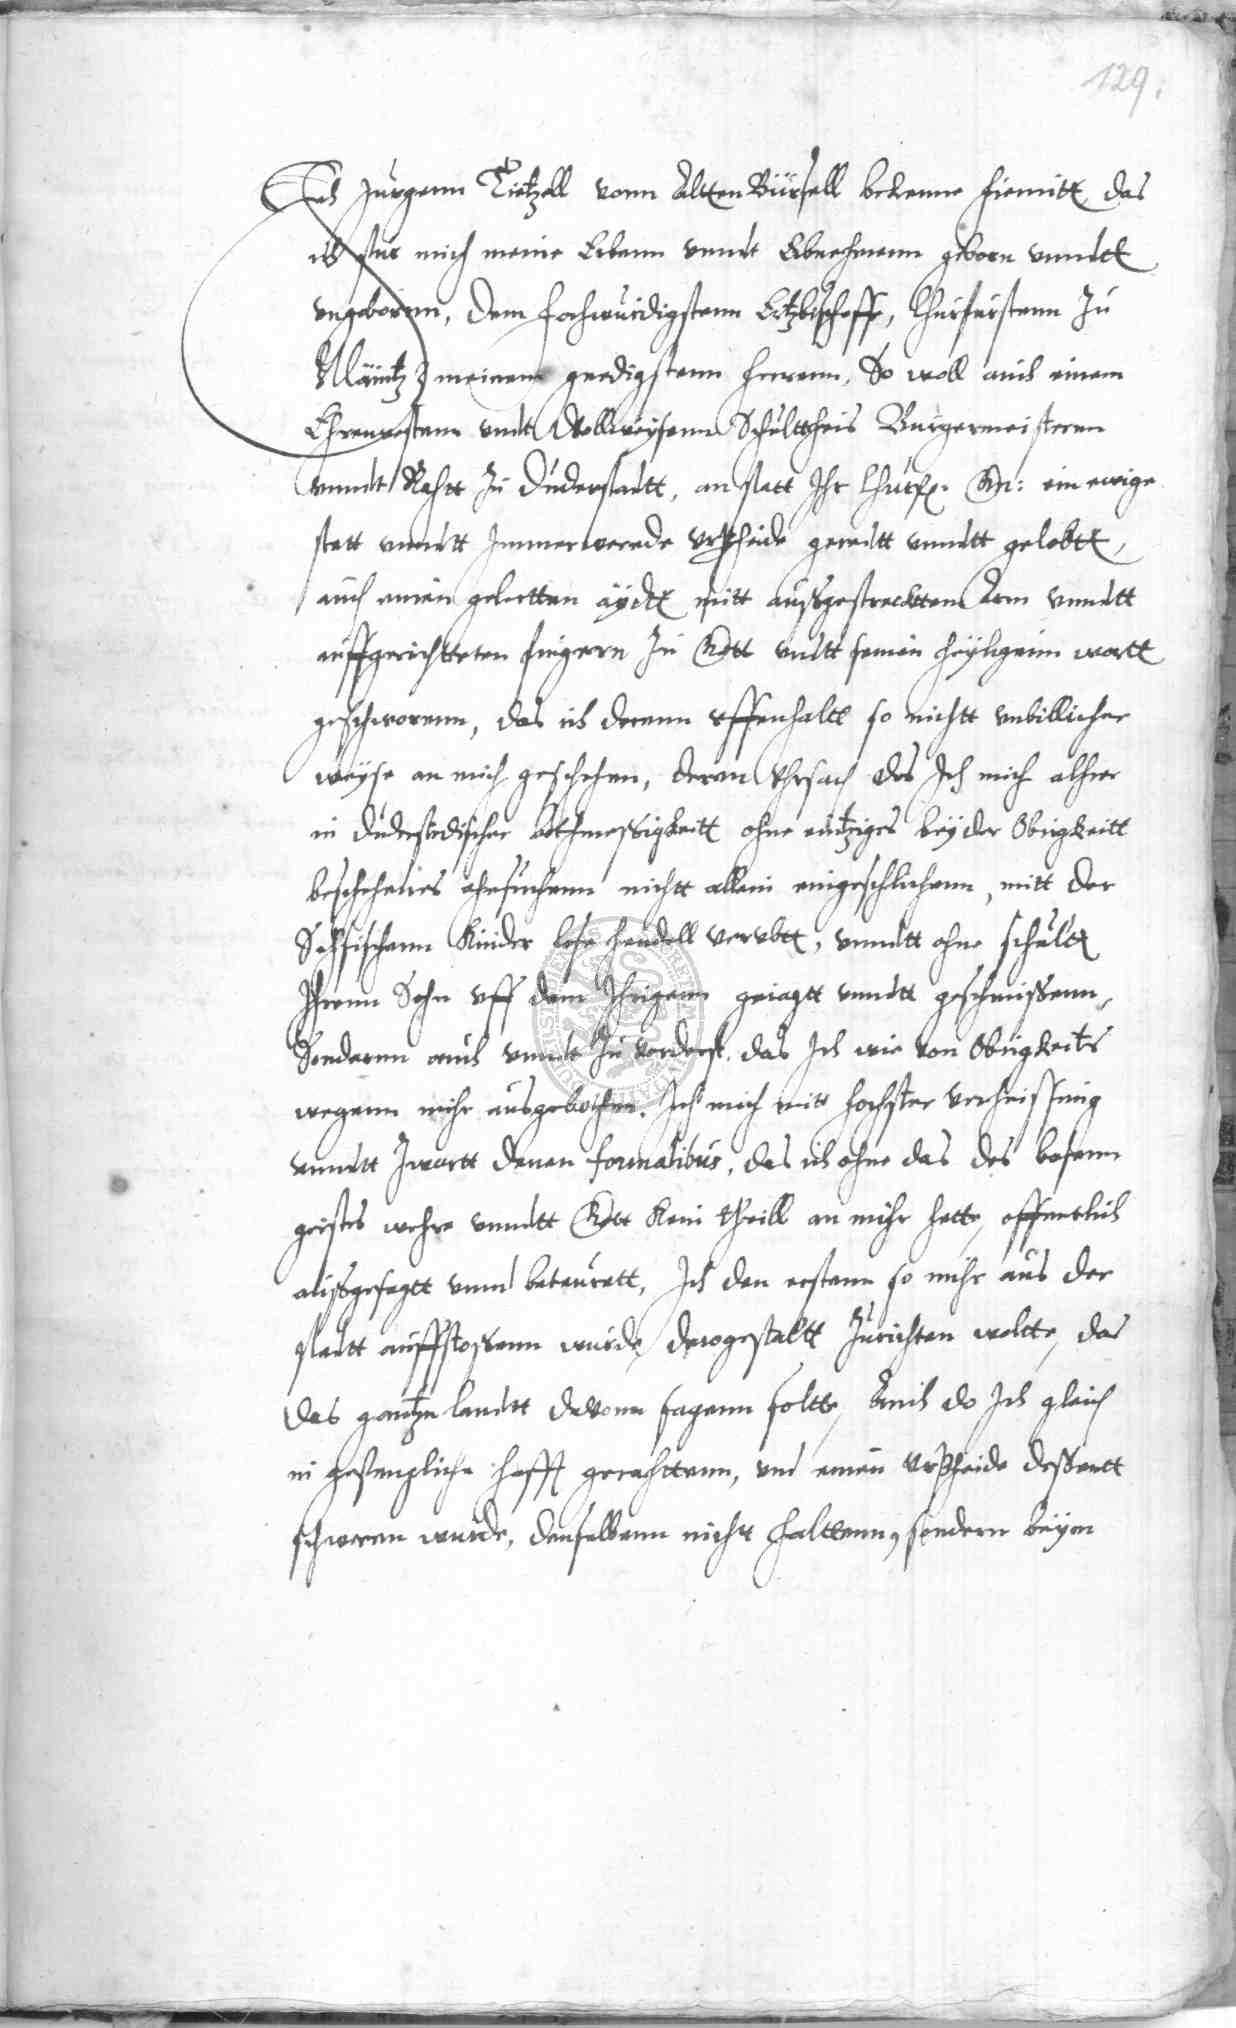 129.
Ich Jurgenn Tietzell vonn Altten Bürsell bekenne hiemitt, das
ich fur mich meine Erbenn unndt Erbnehmenn geborn unndtt
ungebornn, dem hochwurdigstenn Ertzbischoffe, Churfurstenn Zu
Mäintz meinem gnedigstenn Herrenn, So woll auch einem
Ehrenvestenn undt Wollweysenn Schulttheis Burgermeisteren
unndt Rahtt zu Duderstadtt, an statt Ihr Churf. Gn: ein ewige
stett unndtt Immerwerede urpheide geredtt unndtt gelobtt,
auch einen gelertten aydtt mitt aussgestrecktten Arm unndtt
auffgerichtteten fingern Zu Gott undtt seinen heyligenn wortt
geschworenn, das ich derenn uffenhaltt so nichtt unbillicher
weyse an mich geschehen, deren Uhrsach das Ich mich alhier
in Duderstedischer Bothmessigkeitt ohne eintziges bey der Obrigkeitt
beschehenes ehrsuchenn nichtt allein eingeschlichenn, mitt der
Sehsischenn Kinder lose hendell verubtt, unndtt ohne schultt
Ihrenn Sohn uff dem Ihrigenn geiagtt unndtt geschmissenn,
Sondernn auch unndt Zu vorderst, das Ich wie von Obrigkeitts
wegenn mihr ausgebothen, Ich mich mitt hochster verheissung
unndtt Zwartt denen formalibus, das ich ohne das des bosenn
geistes wehre unndtt Gott kein theill an mihr hette, offentlich
aussgesagtt unnd beteurett, Ich den erstenn so mihr aus der
stadtt auffstossenn wurde, derogestaltt Zurichten woltte, das
das gantze landtt davonn sagenn soltte, Auch do Ich gleich
in gefengliche hafft gerahttenn, und einen urpheide dessentt
schweren wurde, denselbenn nicht halttenn, sondern beyen